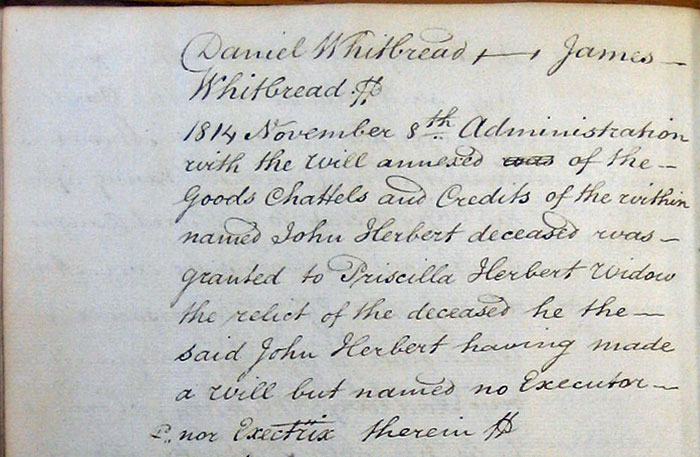 Daniel Whitbread — James —
Whitbread.
1814 November 8th Administration
with the Will annexed was of the —
Goods Chattels and Credits of the within
named John Herbert deceased was —
granted to Priscilla Herbert Widow
the relict of the deceased he the —
said John Herbert having made
a Will but named no Executor —
nor Exectrix therein